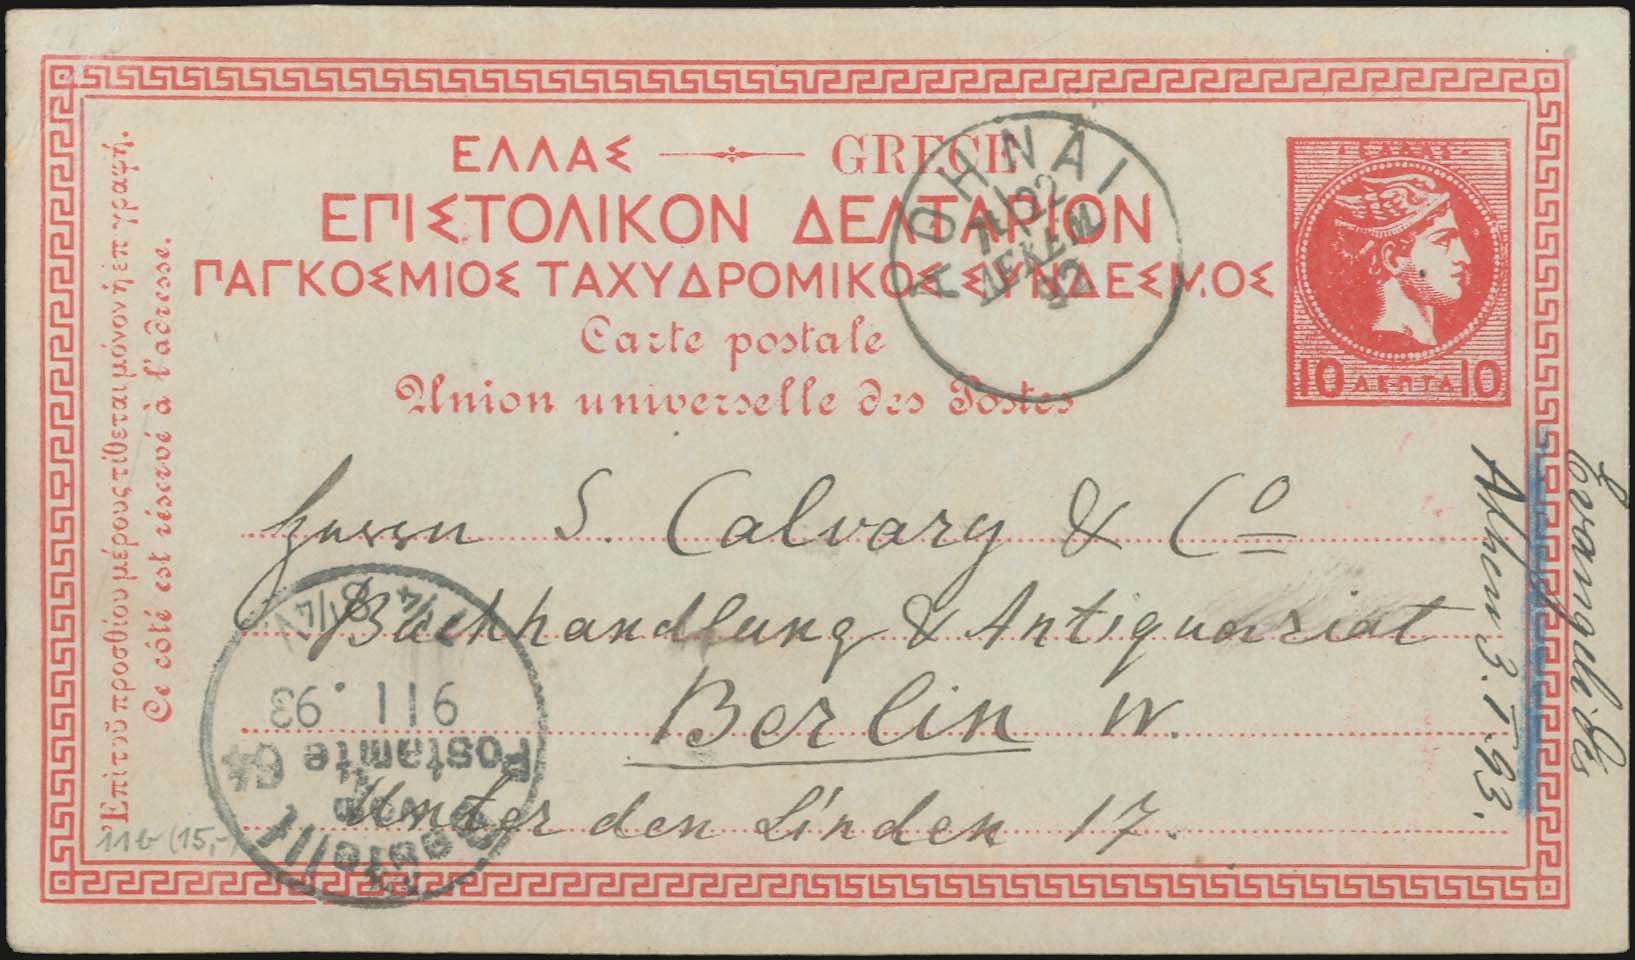 ΕΛΛΑΣ GRECE
ΕΠΙΣΤΟΛΙΚΟΝ ΔΕΛΤΑΡΙΟΝ
ΠΑΓΚΟΣΜΙΟΣ ΤΑΧΥΔΡΟΜΙΚΟΣ ΣΥΝΔΕΣΜΟΣ
Carte postale
Union universelle des Postes
Ἐπὶ τοῦ προσθίου μέρους τίθεται μόνον ἡ ἐπιγραφή.
Ce côté est réservé à l'adresse.
ΑΘΗΝΑΙ
22
ΔΕΚΕΜ
92
ΕΛΛΑΣ
10 ΛΕΠΤΑ 10
Herrn S. Calvary & Co
Buchhandlung & Antiquariat
Berlin W.
Unter den Linden 17.
Athen 3. I. 93.
Bestellt
vom
Postamte 64
9 | 1. 93
7¼-8¼ V
11b (15,-)